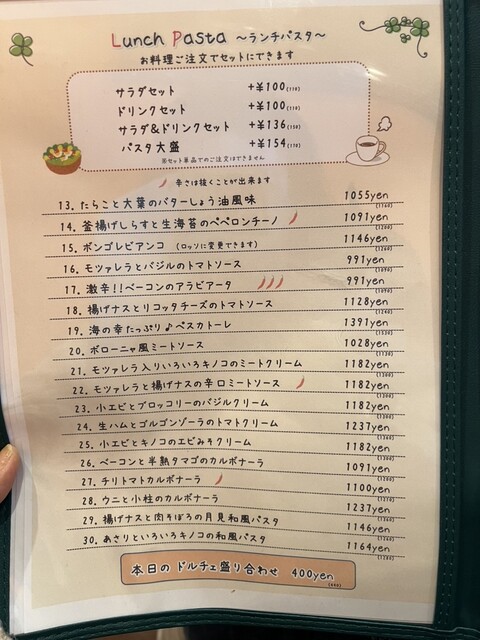 Lunch Pasta ～ランチパスタ～
お料理ご注文でセットにできます
サラダセット +¥100(110)
ドリンクセット +¥100(110)
サラダ&ドリンクセット +¥136(150)
パスタ大盛 +¥154(170)
※セット単品でのご注文はできません
辛さは抜くことが出来ます
13. たらこと大葉のバターしょう油風味 1055yen (1160)
14. 釜揚げしらすと生海苔のペペロンチーノ 1091yen (1200)
15. ボンゴレビアンコ (ロッソに変更できます) 1146yen (1260)
16. モツァレラとバジルのトマトソース 991yen (1090)
17. 激辛!!ベーコンのアラビアータ 991yen (1090)
18. 揚げナスとリコッタチーズのトマトソース 1128yen (1240)
19. 海の幸たっぷり♪ペスカトーレ 1391yen (1530)
20. ボローニャ風ミートソース 1028yen (1130)
21. モツァレラ入りいろいろキノコのミートクリーム 1182yen (1300)
22. モツァレラと揚げナスの辛口ミートソース 1182yen (1300)
23. 小エビとブロッコリーのバジルクリーム 1182yen (1300)
24. 生ハムとゴルゴンゾーラのトマトクリーム 1237yen (1360)
25. 小エビとキノコのエビみそクリーム 1182yen (1300)
26. ベーコンと半熟タマゴのカルボナーラ 1091yen (1200)
27. チリトマトカルボナーラ 1100yen (1210)
28. ウニと小柱のカルボナーラ 1237yen (1360)
29. 揚げナスと肉そぼろの月見和風パスタ 1146yen (1260)
30. あさりといろいろキノコの和風パスタ 1164yen (1280)
本日の ドルチェ盛り合わせ 400yen (440)